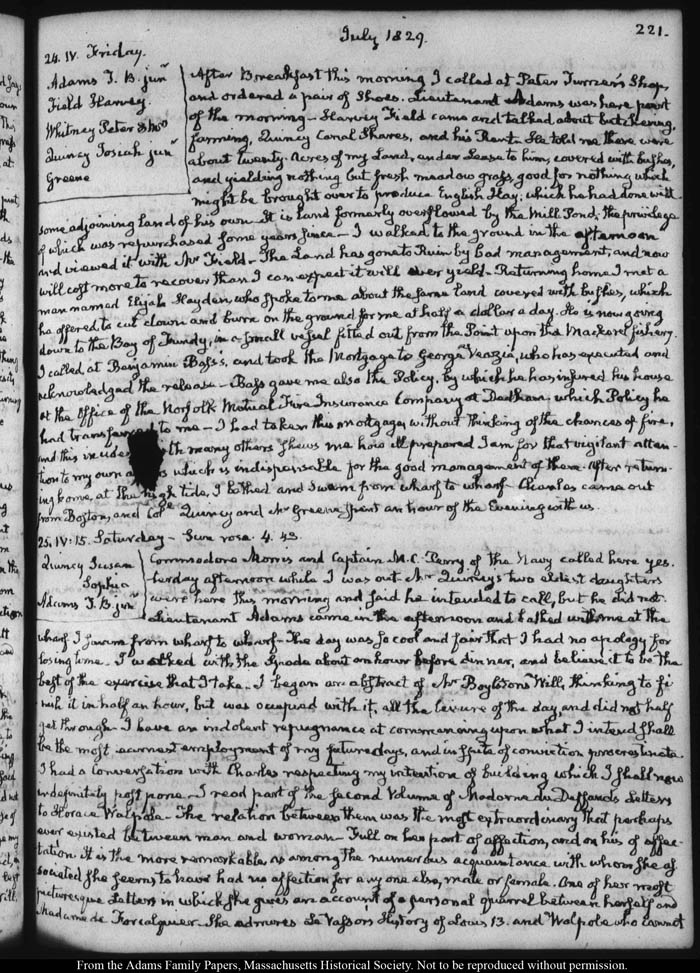 July 1829.
221.
24. IV. Friday.
Adams T. B. junr
Field Harvey.
Whitney Peter &
Quincy Josiah junr
Greene
After Breakfast this morning I called at Peter Turner's Shop,
and ordered a pair of Shoes. Lieutenant Adams was here part
of the morning — Harvey Field came and talked about butchering,
farming, Quincy Canal Shares, and his Rent. He told me there were
about twenty Acres of my Land, under Lease to him, covered with bushes,
and yielding nothing but fresh meadow grass, good for nothing which
might be brought over to produce English Hay, which he had done with
some adjoining land of his own. It is land formerly overflowed by the Mill Pond; the priviledge
of which was repurchased some years since — I walked to the ground in the afternoon
and viewed it with Mr Field — The Land has gone to Ruin by bad management, and now
will cost more to recover than I can expect it will ever yield — Returning home I met a
man named Elijah Hayden, who spoke to me about the same land covered with bushes, which
he offered to cut down and burn on the ground for me at half a dollar a day. He is now going
down to the Bay of Fundy, in a small vessel fitted out from the Point upon the Mackerel fishery.
I called at Benjamin Bass's, and took the Mortgage to George Veazie, who has executed and
acknowledged the release — Bass gave me also the Policy, by which he has insured his house
at the Office of the Norfolk Mutual Fire Insurance Company at Dedham; which Policy he
had transferred to me — I had taken this mortgage, without thinking of the chances of fire,
and this with many others shews me how ill prepared I am for that vigilant atten-
tion to my own which is indispensable for the good management of them. After return-
ing home, at the high tide, I bathed and swam from wharf to wharf. Charles came out
from Boston, and Quincy and Mr Greene spent an hour of the Evening with us.
25. IV:15. Saturday — Sun rose. 4. 43.
Quincy Susan
Sophia
Adams T. B. junr
Commodore Morris and Captain M. C. Perry of the Navy called here yes-
terday afternoon while I was out. Mr Quincy's two eldest daughters
were here this morning and said he intended to call, but he did not.
Lieutenant Adams came in the afternoon and bathed with me at the
wharf. I swam from wharf to wharf — The day was so cool and fair that I had no apology for
losing time. I worked with the Spade about an hour before dinner, and believe it to be the
best of the exercise that I take. I began an abstract of Mr Boylston's Will, thinking to fi-
nish it in half an hour, but was occupied with it, all the leisure of the day, and did not half
get through — I have an indolent repugnance at commencing upon what I intend shall
be the most earnest employment of my future days, and in spite of conviction procrastinate.
I had a Conversation with Charles respecting my intention of building which I shall now
indefinitely postpone. I read part of the second Volume of Madame du Deffand's Letters
to Horace Walpole. The relation between them was the most extraordinary that perhaps
ever existed between man and woman — Full on her part of affection, and on his of affec-
tation. It is the more remarkable, as among the numerous acquaintance with whom she as-
sociated she seems to have had no affection for any one else, male or female. One of her most
picturesque Letters in which she gives an account of a personal quarrel between herself and
Madame de Forcalquier. She admires Le Vassor's History of Louis 13. and Walpole who cannot
From the Adams Family Papers, Massachusetts Historical Society. Not to be reproduced without permission.